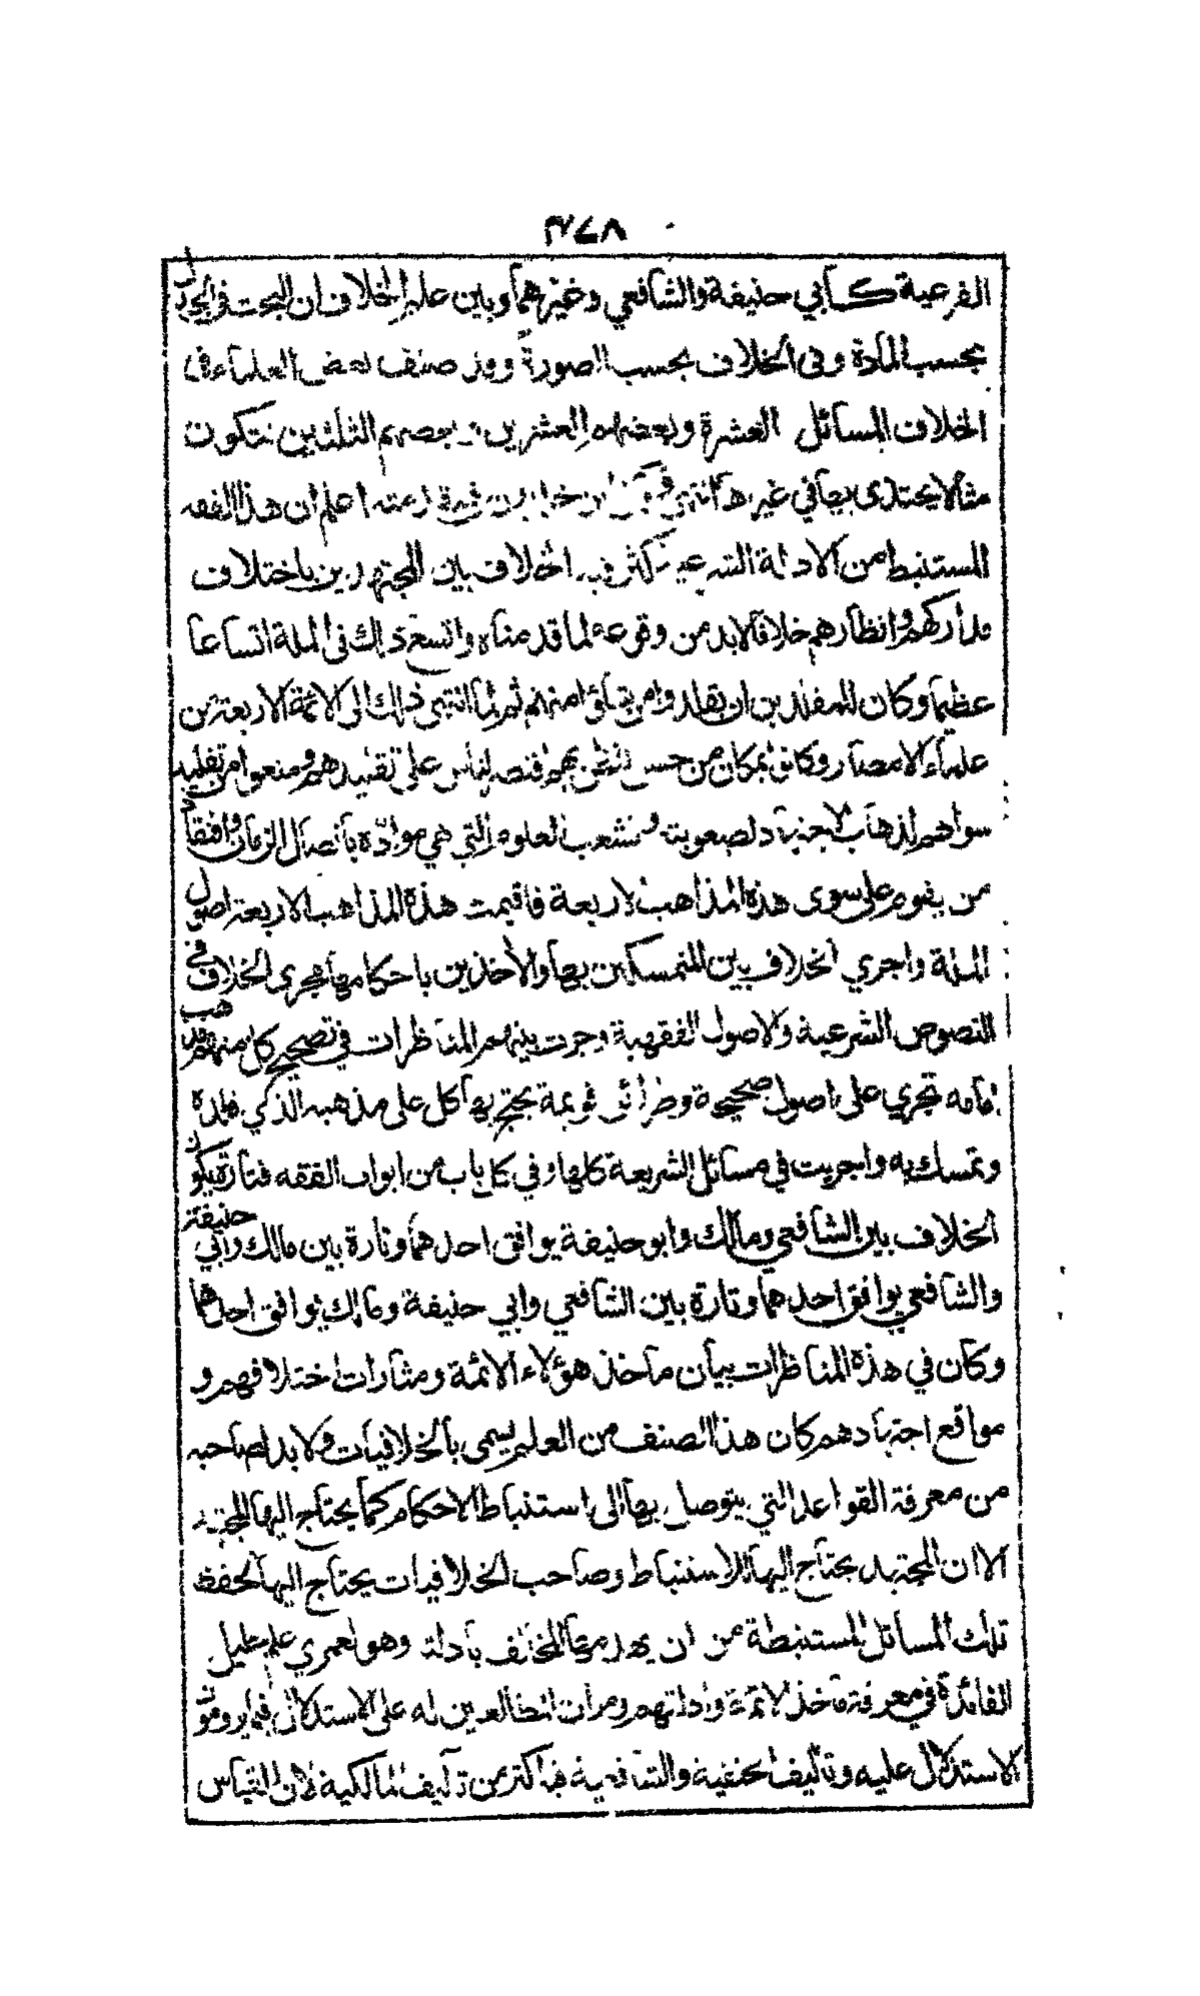 ٣٧٨
الفرعية كابي حنيفة والشافعي وغيرهما وبين علم الخلاف ان البحث في الجدل
بحسب المادة وفي الخلاف بحسب الصورة وقد صنف بعض العلماء في
الخلاف المسائل العشرة وبعضهم العشرين وبعضهم الثلثين لتكون
مثالا يحتذى بها في غيرها انتهى قال ابن خلدون في مقدمته اعلم ان هذا الفقه
المستنبط من الادلة الشرعية كثر فيه الخلاف بين المجتهدين باختلاف
مداركهم وانظارهم خلافا لابد من وقوعه لما قدمناه واتسع ذلك في الملة اتساعا
عظيما وكان للمقلدين ان يقلدوا من شاؤا منهم ثم لما انتهى ذلك الى الائمة الاربعة من
علماء الامصار وكانوا بمكان من حسن الظن بهم اقتصر الناس على تقليدهم ومنعوا من تقليد
سواهم لذهاب الاجتهاد لصعوبته وتشعب العلوم التي هي موادّه باتصال الزمان وافتقاد
من يقوم على سوى هذه المذاهب الاربعة فاقيمت هذه المذاهب الاربعة اصول
الملة واجري الخلاف بين المتمسكين بها والأخذين باحكامها مجرى الخلاف في
النصوص الشرعية والاصول الفقهية وجرت بينهم المناظرات في تصحيح كل منهم مذهب
امامه تجري على اصول صحيحة وطرائق قويمة يحتج بها كل على مذهبه الذي قلده
وتمسك به واجريت في مسائل الشريعة كلها وفي كل باب من ابواب الفقه فتارة يكون
الخلاف بين الشافعي ومالك وابو حنيفة يوافق احدهما وتارة بين مالك وابي حنيفة
والشافعي يوافق احدهما وتارة بين الشافعي وابي حنيفة ومالك يوافق احدهما
وكان في هذه المناظرات بيان ماخذ هؤلاء الائمة ومثارات اختلافهم و
مواقع اجتهادهم كان هذا الصنف من العلم يسمى بالخلافيات ولا بد لصاحبه
من معرفة القواعد التي يتوصل بها الى استنباط الاحكام كما يحتاج اليها المجتهد
الا ان المجتهد يحتاج اليها للاستنباط وصاحب الخلافيات يحتاج اليها لحفظ
تلك المسائل المستنبطة من ان يهدمها المخالف بادلته وهو لعمري علم جليل
الفائدة في معرفة ماخذ الائمة وادلتهم ومران المطالعين له على الاستدلال فيما يرومون
الاستدلال عليه وتأليف الحنفية والشافعية فيه اكثر من تآليف المالكية لان القياس